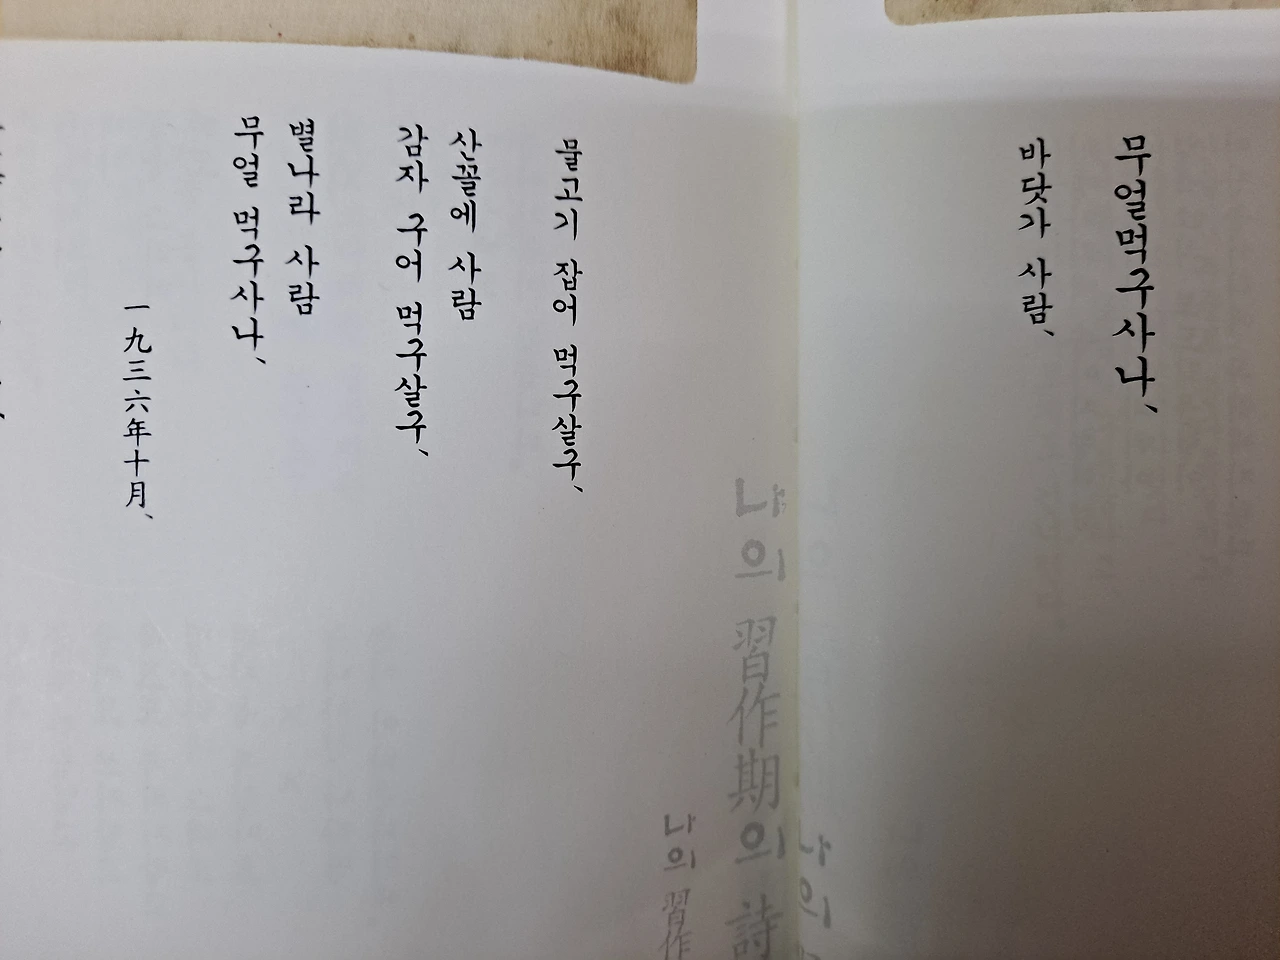 무얼먹구사나、
바닷가 사람、
물고기 잡어 먹구살구、
산꼴에 사람
감자 구어 먹구살구、
별나라 사람
무얼 먹구사나、
一九三六年十月、
나의 習作期의 詩
나의 習作
나의